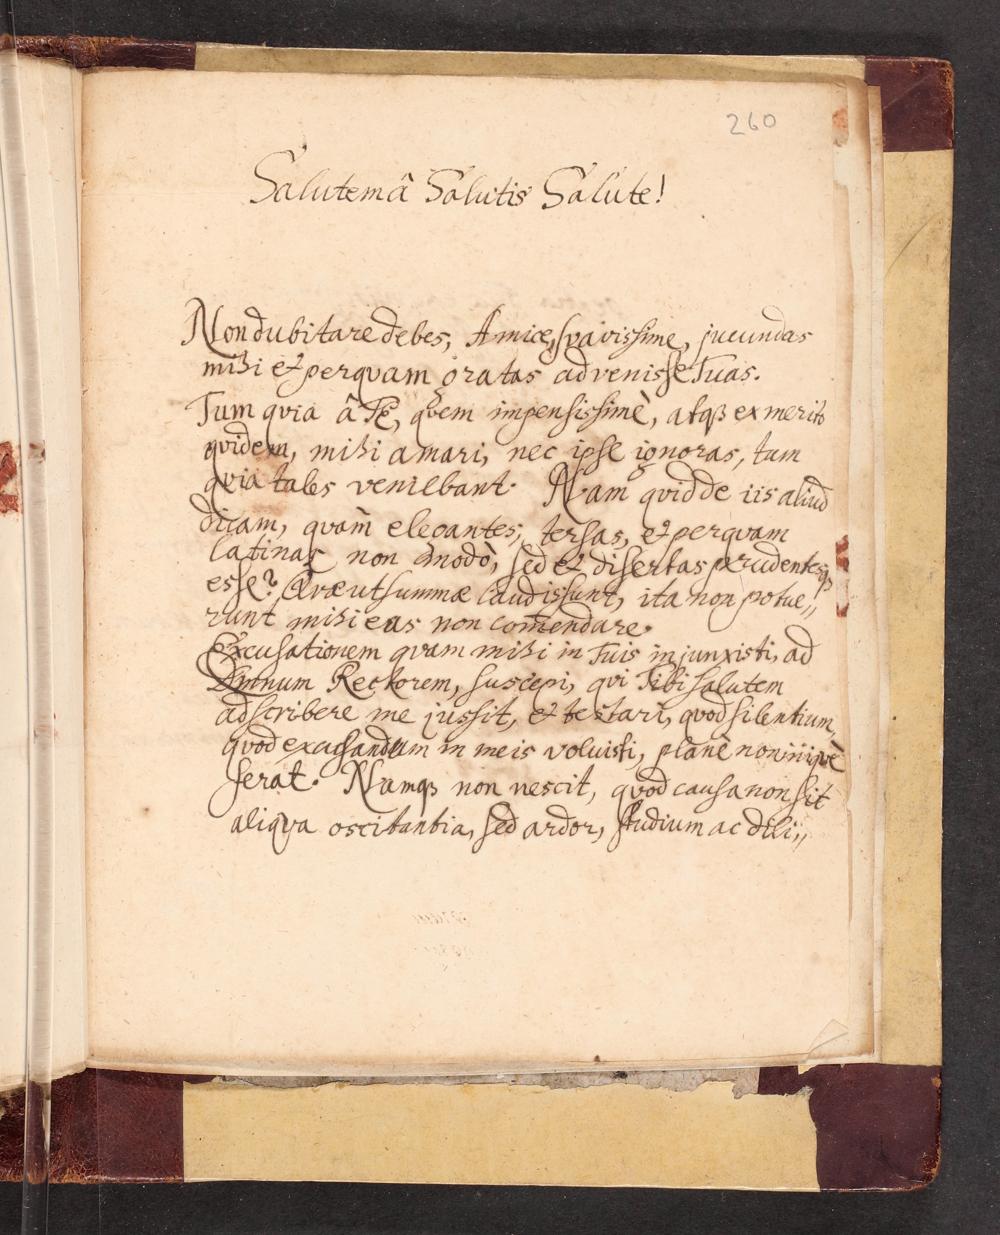 260
Salutem â Salutis Salute!
Non dubitare debes, Amice, svavissime, jucundas
mihi et perqvam gratas advenisse Tuas.
Tum qvia â Te, qvem impensissimè, atqȝ ex merito
qvidem, mihi amari, nec ipse ignoras, tum
qvia tales veniebant. Nam qvid de iis aliud
dicam, qvam̀ elegantes, tersas, et perqvam
latinas non modò, sed et disertas prudentesqȝ
esse? Qvæ ut summæ laudis sunt, ita non potue„
runt mihi eas non com̄endare.
Excusationem qvam mihi in Tuis injunxisti, ad
Dm̄num Rectorem, suscepi, qvi Tibi salutem
adscribere me jussit, et testari, qvod silentium,
qvod excusandum in meis voluisti, planè non iniqvè
ferat. Namqȝ non nescit, qvod causa non sit
aliqva oscitantia, sed ardor, studium ac dili„